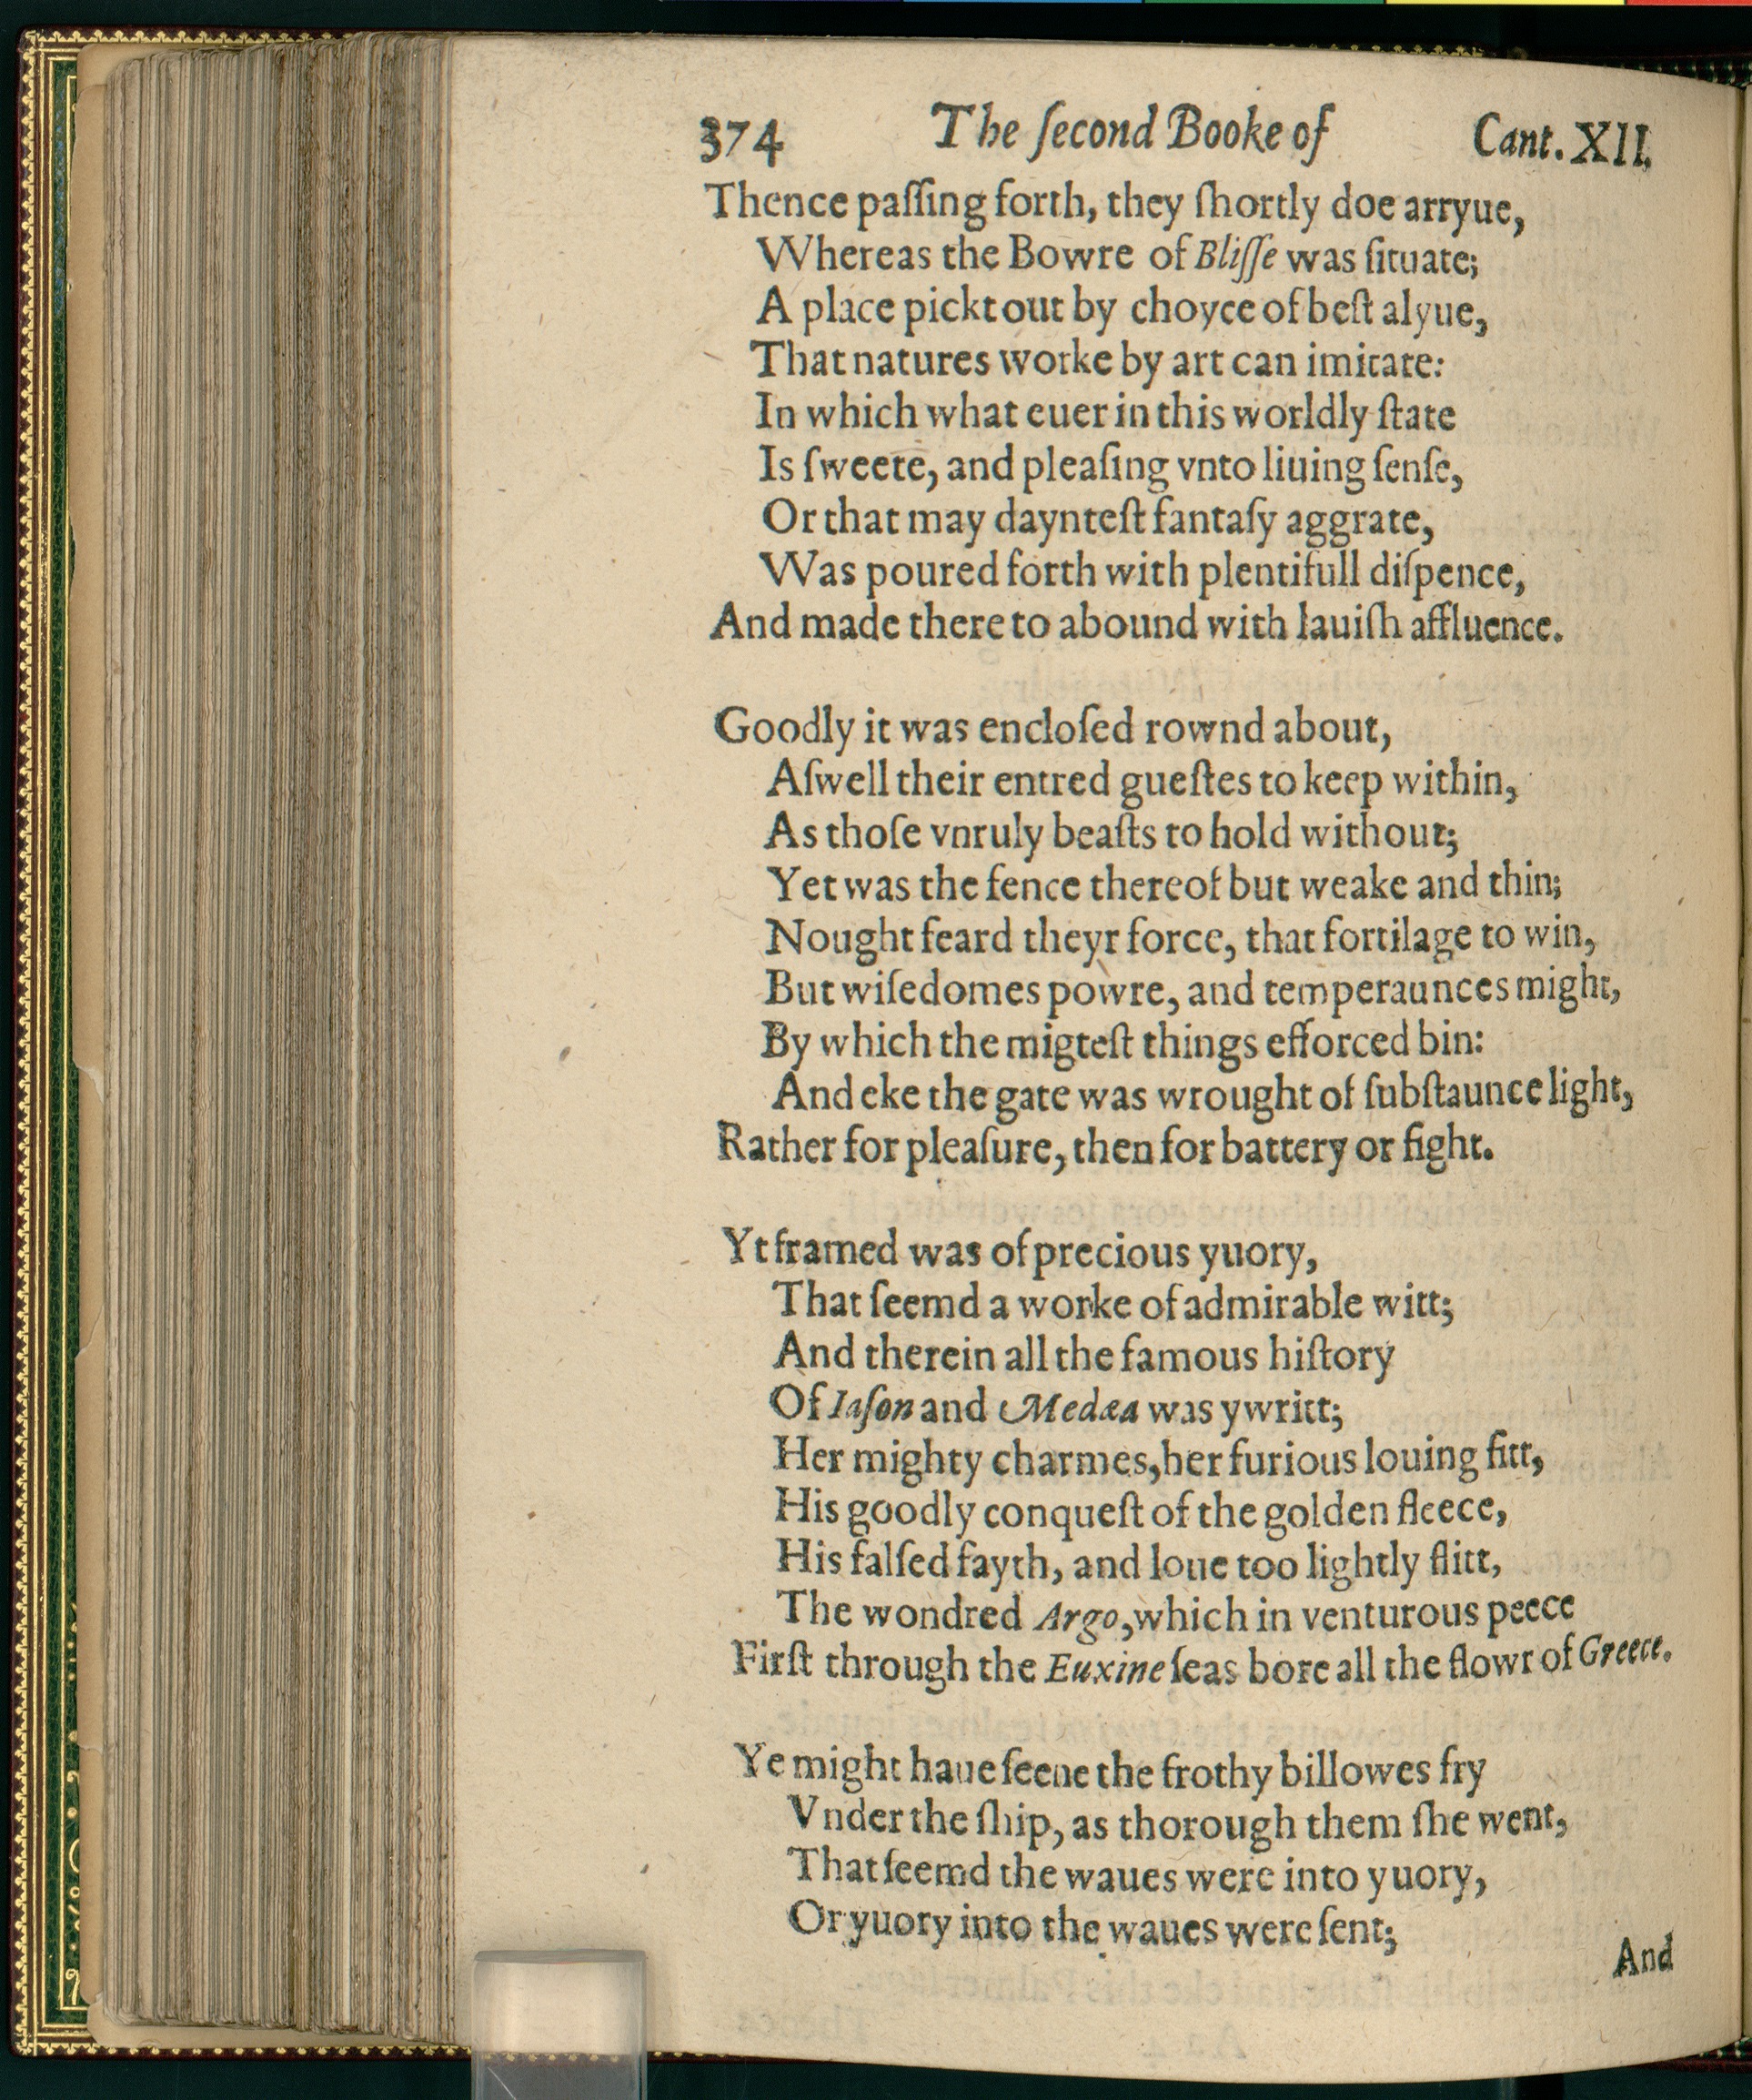 374 The ſecond Booke of Cant. XII.
Thence paſſing forth, they ſhortly doe arryue,
Whereas the Bowre of Bliſſe was ſituate;
A place pickt out by choyce of beſt alyue,
That natures worke by art can imitate:
In which what euer in this worldly ſtate
Is ſweete, and pleaſing vnto liuing ſenſe,
Or that may daynteſt fantaſy aggrate,
Was poured forth with plentifull diſpence,
And made there to abound with lauiſh affluence.
Goodly it was encloſed rownd about,
Aſwell their entred gueſtes to keep within,
As thoſe vnruly beaſts to hold without;
Yet was the fence thereof but weake and thin;
Nought feard theyr force, that fortilage to win,
But wiſedomes powre, and temperaunces might,
By which the migteſt things efforced bin:
And eke the gate was wrought of ſubſtaunce light,
Rather for pleaſure, then for battery or fight.
Yt framed was of precious yuory,
That ſeemd a worke of admirable witt;
And therein all the famous hiſtory
Of Iaſon and Medæa was ywritt;
Her mighty charmes, her furious louing fitt,
His goodly conqueſt of the golden fleece,
His falſed fayth, and loue too lightly flitt,
The wondred Argo, which in venturous peece
Firſt through the Euxine ſeas bore all the flowr of Greece.
Ye might haue ſeene the frothy billowes fry
Vnder the ſhip, as thorough them ſhe went,
That ſeemd the waues were into yuory,
Or yuory into the waues were ſent;
And